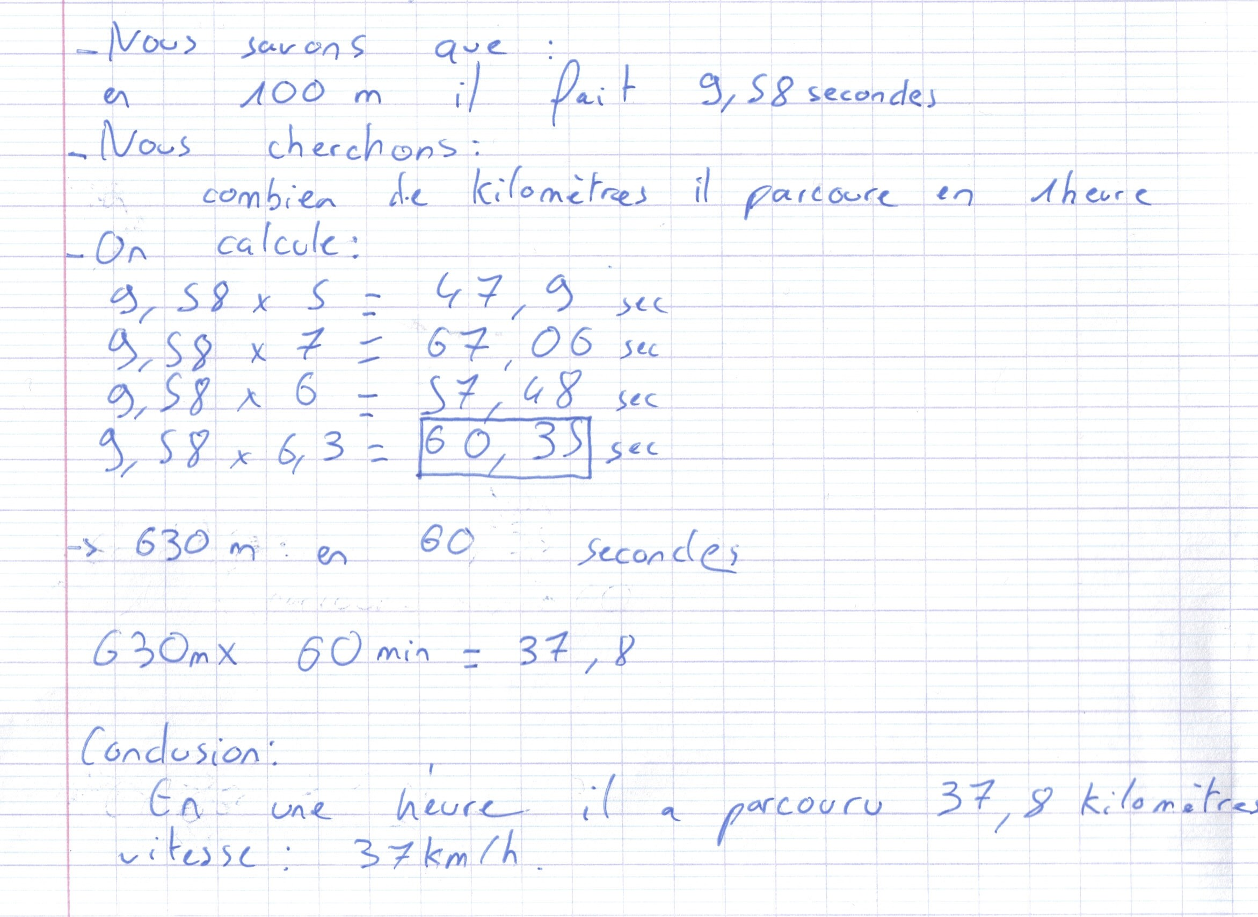 - Nous savons que :
en 100 m il fait 9,58 secondes
- Nous cherchons :
combien de kilomètres il parcoure en 1heure
- On calcule :
9,58 x 5 = 47,9 sec
9,58 x 7 = 67,06 sec
9,58 x 6 = 57,48 sec
9,58 x 6,3 = 60,35 sec
-> 630 m en 60 secondes
630m x 60 min = 37,8
Conclusion :
En une heure il a parcouru 37,8 kilomètres
vitesse : 37km/h.